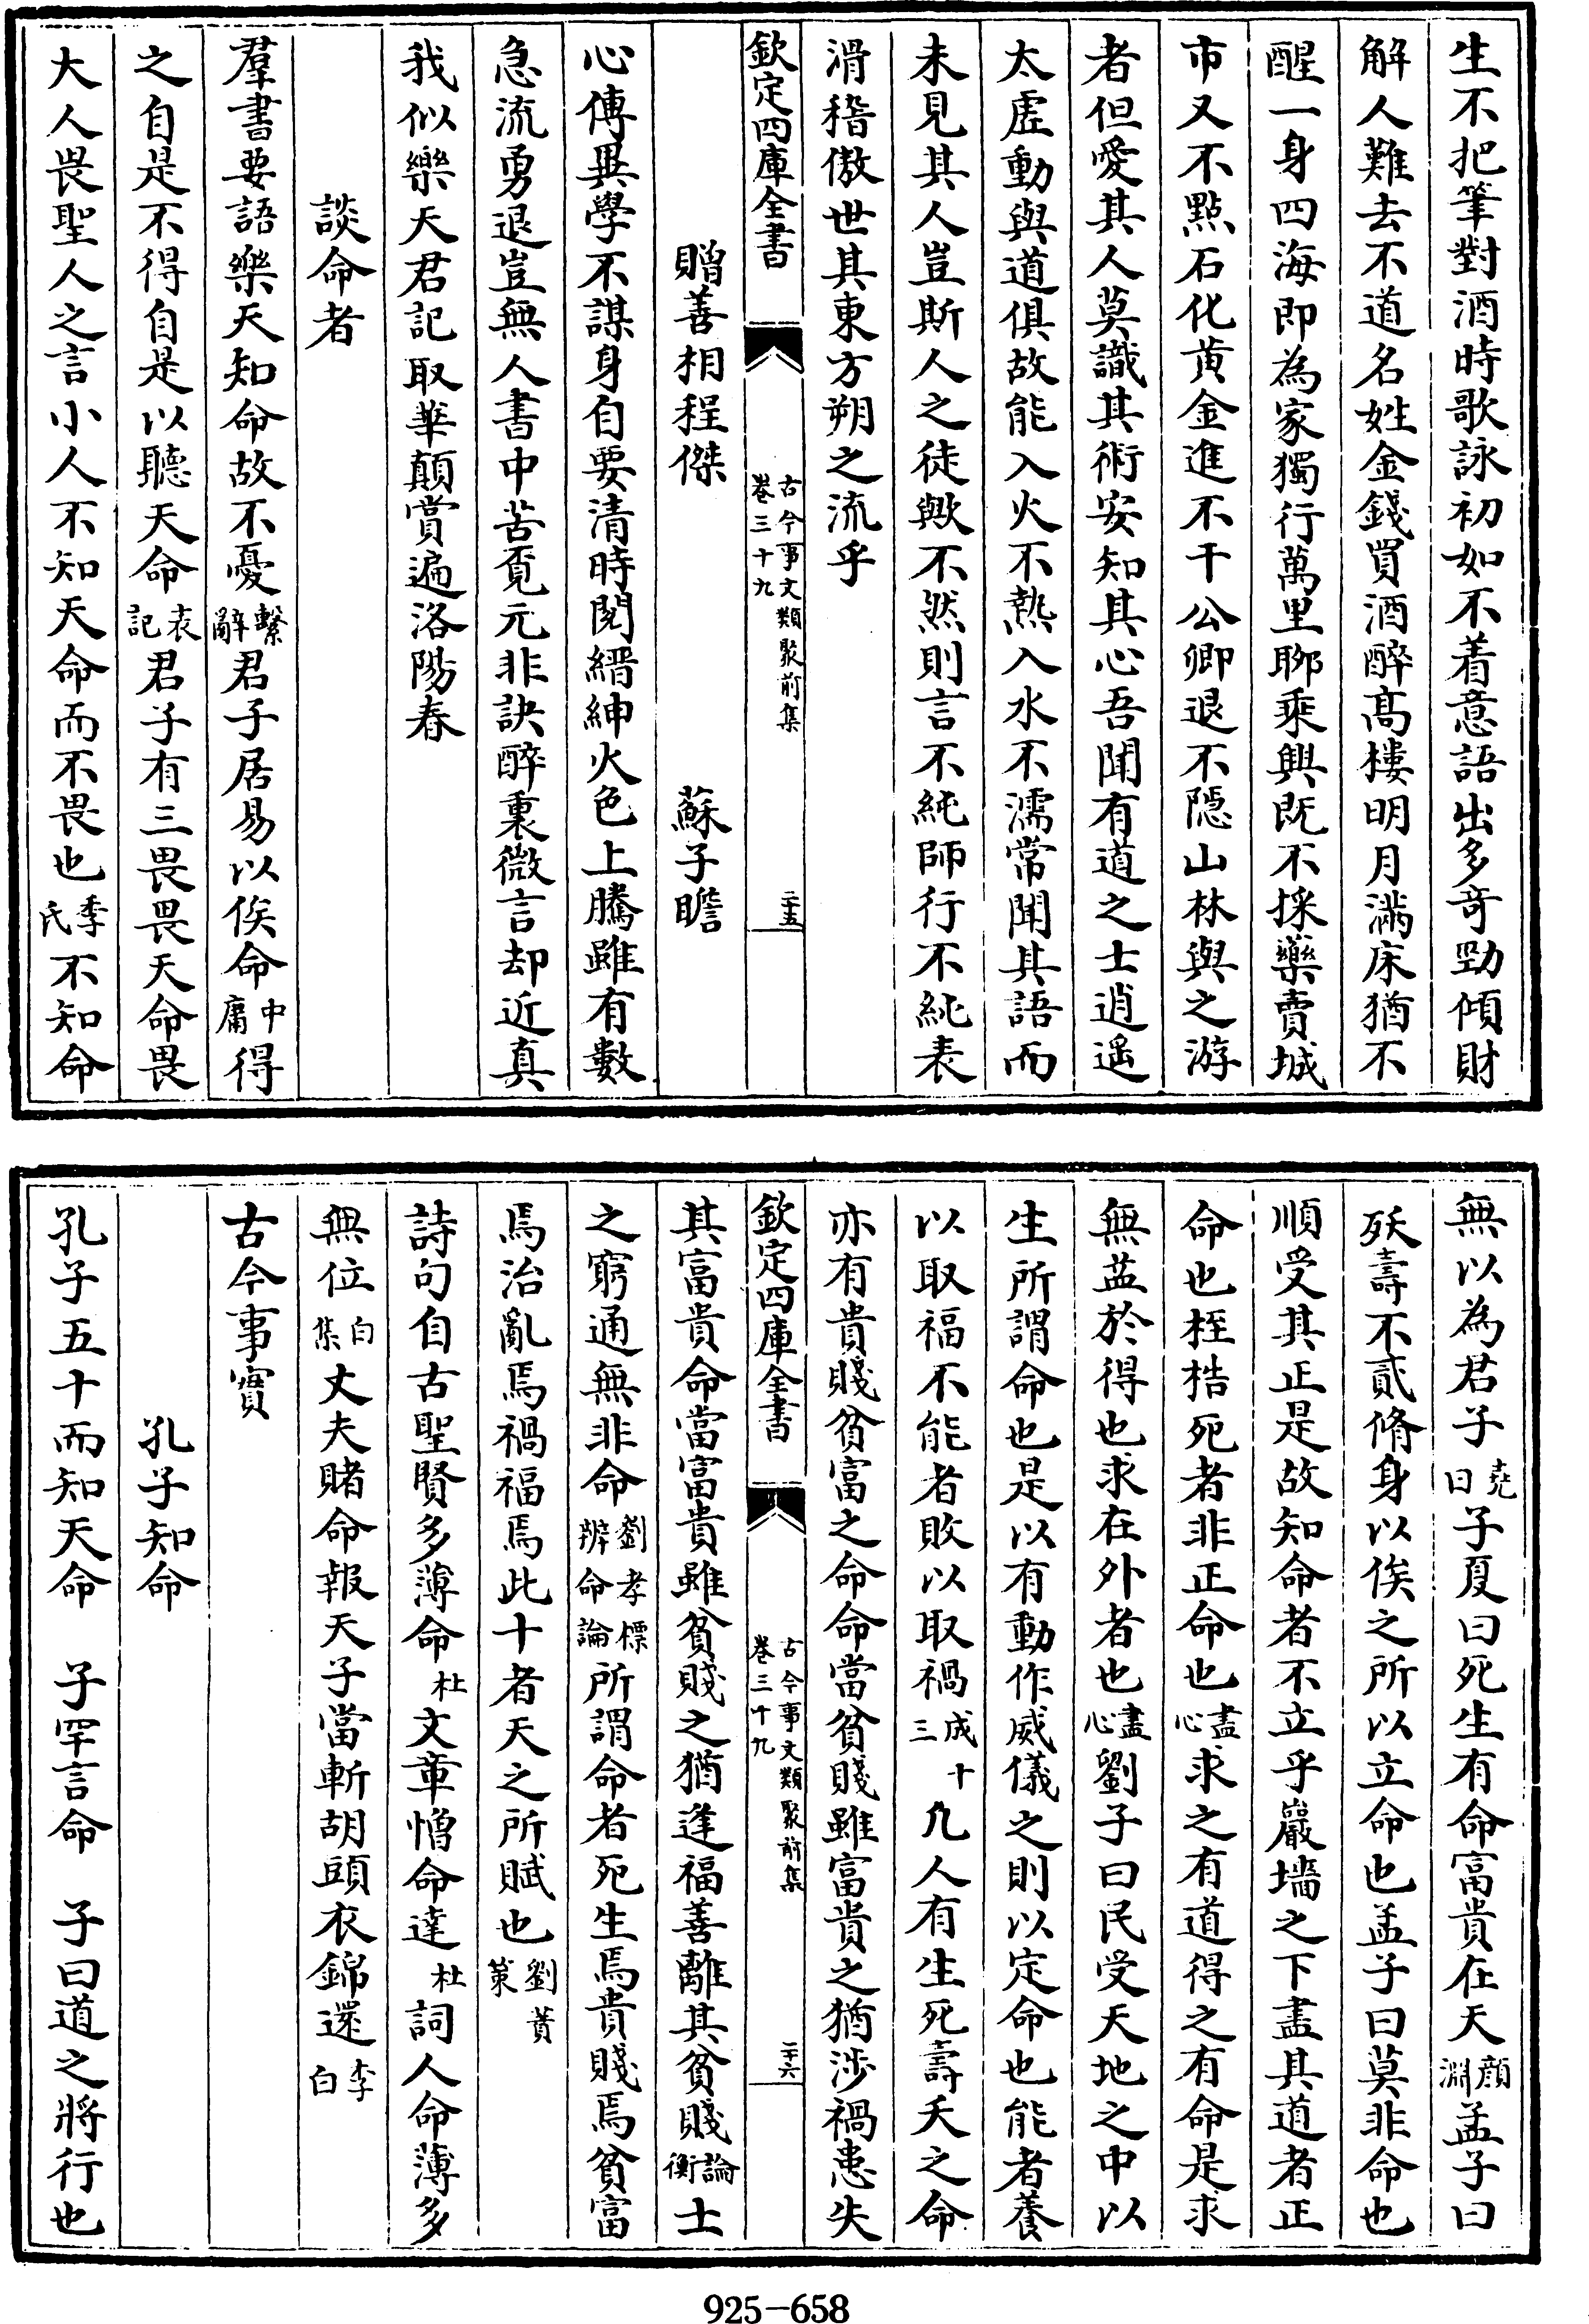 生不把筆對酒時歌詠初如不着意語出多奇勁傾財
解人難去不道名姓金錢買酒醉髙樓明月滿床猶不
醒一身四海即為家獨行萬里聊乘興既不採藥賣城
市又不點石化黄金進不干公卿退不隠山林與之游
者但愛其人莫識其術安知其心吾聞有道之士逍遥
太虚動與道俱故能入火不熱入水不濡常聞其語而
未見其人豈斯人之徒歟不然則言不純師行不純表
滑稽傲世其東方朔之流乎
欽定四庫全書
古今事文類聚前集
卷三十九
二十五
贈善相程傑　蘇子瞻
心傳異學不謀身自要清時閲縉紳火色上騰雖有數
急流勇退豈無人書中苦覓元非訣醉裏微言却近真
我似樂天君記取華顛賞遍洛陽春
談命者
羣書要語樂天知命故不憂繫辭君子居易以俟命中庸得
之自是不得自是以聽天命表記君子有三畏畏天命畏
大人畏聖人之言小人不知天命而不畏也季氏不知命
無以為君子堯曰子夏曰死生有命富貴在天顔淵孟子曰
殀壽不貳脩身以俟之所以立命也孟子曰莫非命也
順受其正是故知命者不立乎巖墻之下盡其道者正
命也桎梏死者非正命也盡心求之有道得之有命是求
無益於得也求在外者也盡心劉子曰民受天地之中以
生所謂命也是以有動作威儀之則以定命也能者養
以取福不能者敗以取禍成十三凡人有生死壽夭之命
亦有貴賤貧富之命命當貧賤雖富貴之猶涉禍患失
欽定四庫全書
古今事文類聚前集
卷三十九
二十六
其富貴命當富貴雖貧賤之猶逢福善離其貧賤論衡士
之窮通無非命劉孝標辨命論所謂命者死生焉貴賤焉貧富
焉治亂焉禍福焉此十者天之所賦也劉蕡策
詩句自古聖賢多薄命杜文章憎命達杜詞人命薄多
無位白集丈夫賭命報天子當斬胡頭衣錦還李白
古今事實
孔子知命
孔子五十而知天命　子罕言命　子曰道之將行也
925-658